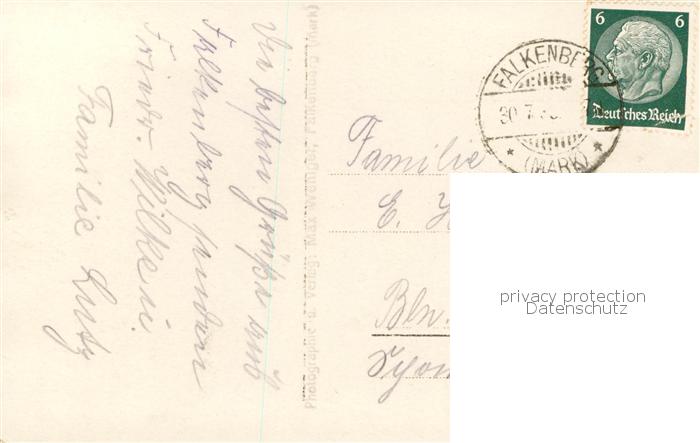 Die besten Grüße aus
Falkenberg senden
Friedr. Wilke u.
Familie Lutz
Photographie u. Verlag: Max Weiniger, Falkenberg (Mark)
6 6
Deutsches Reich
FALKENBERG
30.7.
* (MARK) *
Familie
E. H
Bln.
Schön
privacy protection
Datenschutz